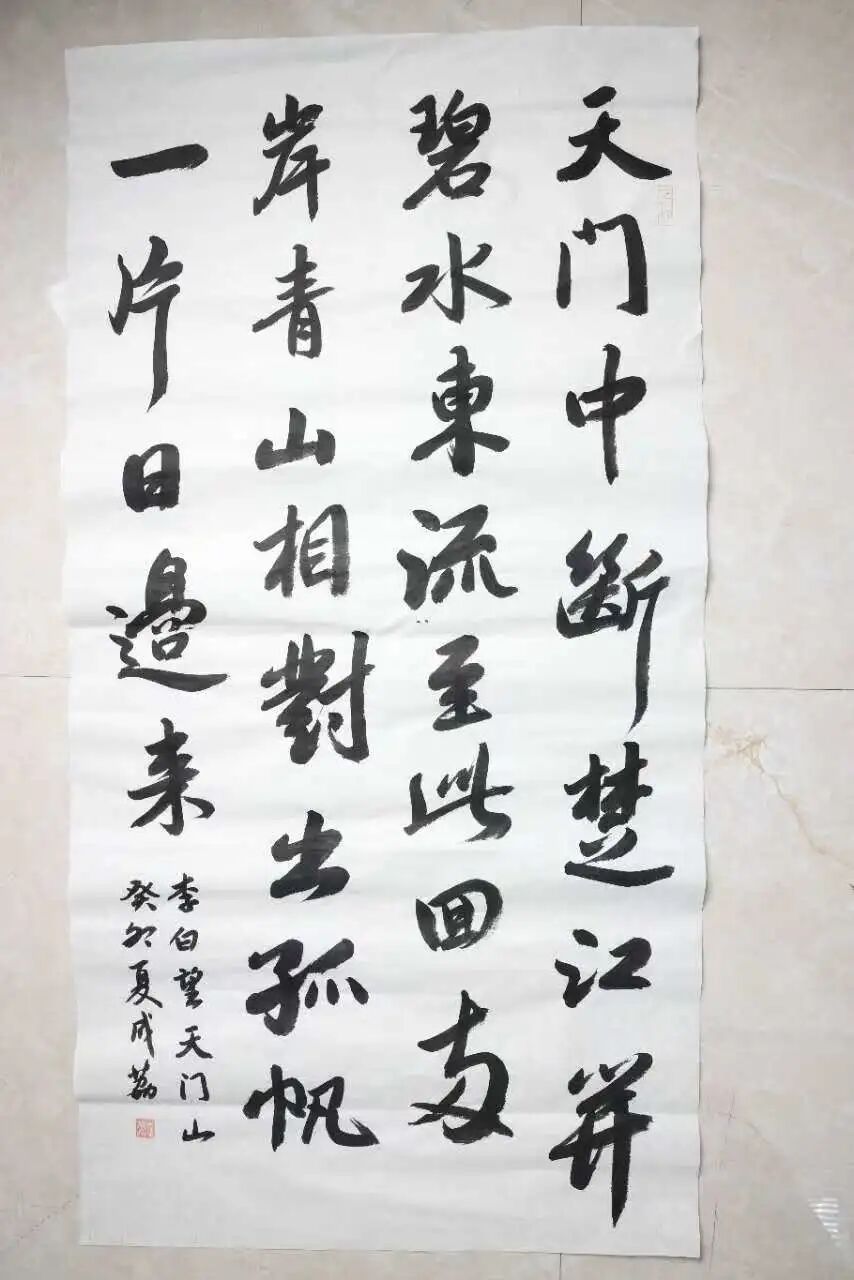 天门中斷楚江开
碧水東流至此回两
岸青山相對出孤帆
一片日邊来
李白望天门山
癸卯夏成荔